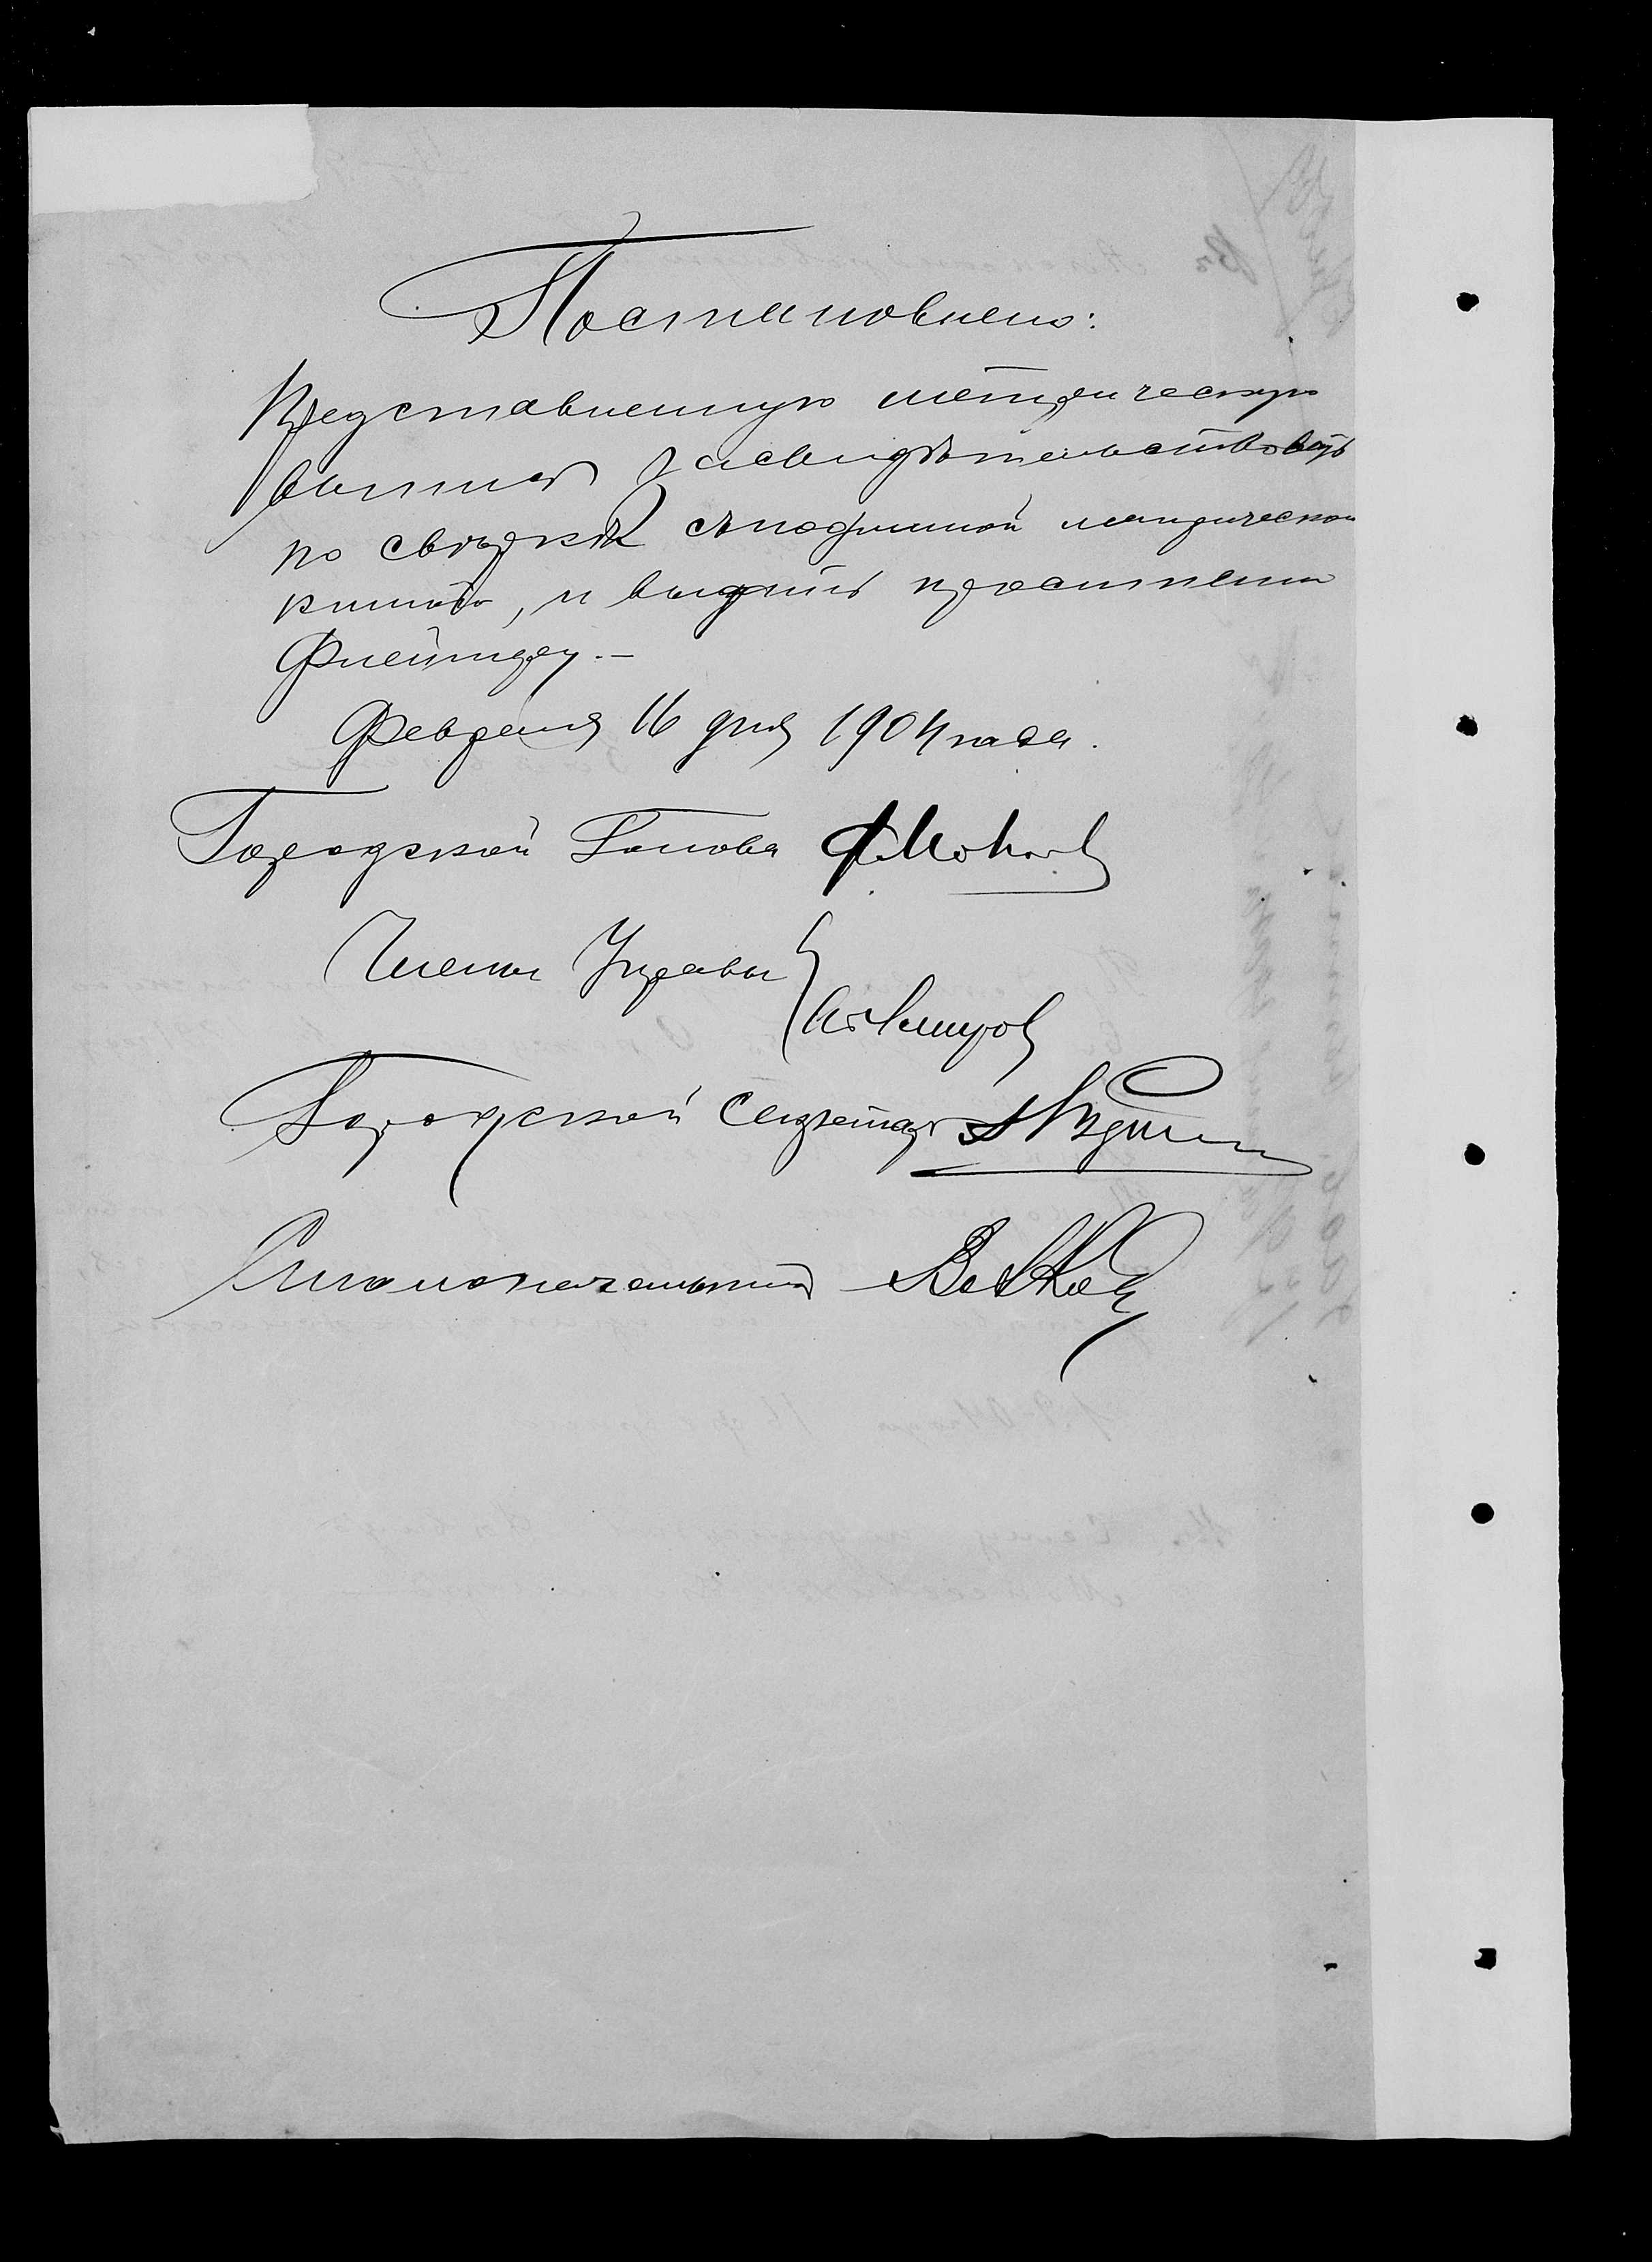 Постановлено:
Представленную метрическую
выпись засвидѣтельствовать
по свѣркѣ съ подлинной метрической
книгой, и выдать просителю
Февраля 16 дня 1904 года.
Городской Голова
Члены Управы
Городской Секретарь
Столоначальникъ